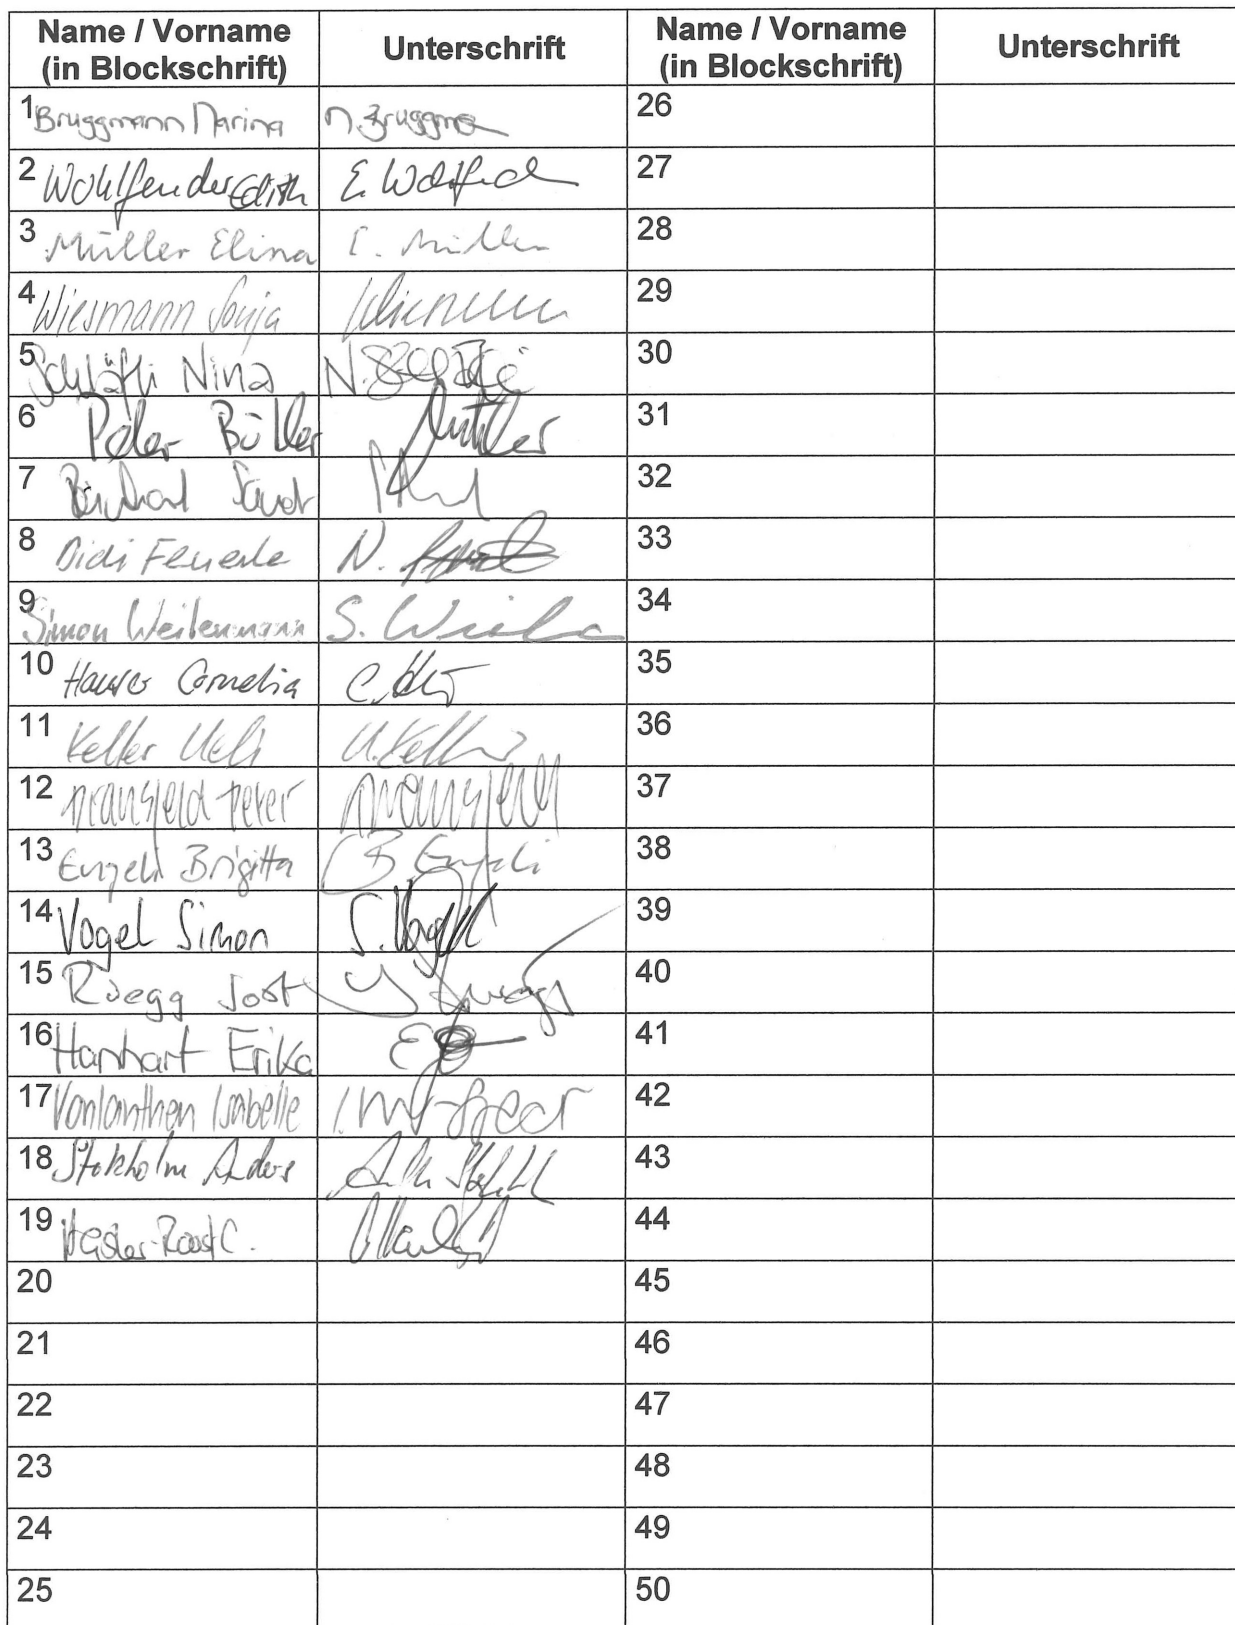 Name / Vorname (in Blockschrift) Unterschrift Name / Vorname (in Blockschrift) Unterschrift
1 Bruggmann Marina M. Bruggma 26
2 Wohlfender Edith E. Wohlfend 27
3 Müller Elina E. Müller 28
4 Wiesmann Sonja Wiesmann 29
5 Schläfli Nina N. Schläfli 30
6 Peter Bühler 31
7 32
8 Didi Feuerle 33
9 Simon Weilenmann S. Weile 34
10 Hauser Cornelia 35
11 Keller Ueli U. Keller 36
12 Mransfeld Peter 37
13 Engeli Brigitta B Engeli 38
14 Vogel Simon S. Vogel 39
15 Rüegg Jost J Rüegg 40
16 Hanhart Erika 41
17 Vonlanthen Isabelle 42
18 Stokholm Anders 43
19 44
20 45
21 46
22 47
23 48
24 49
25 50